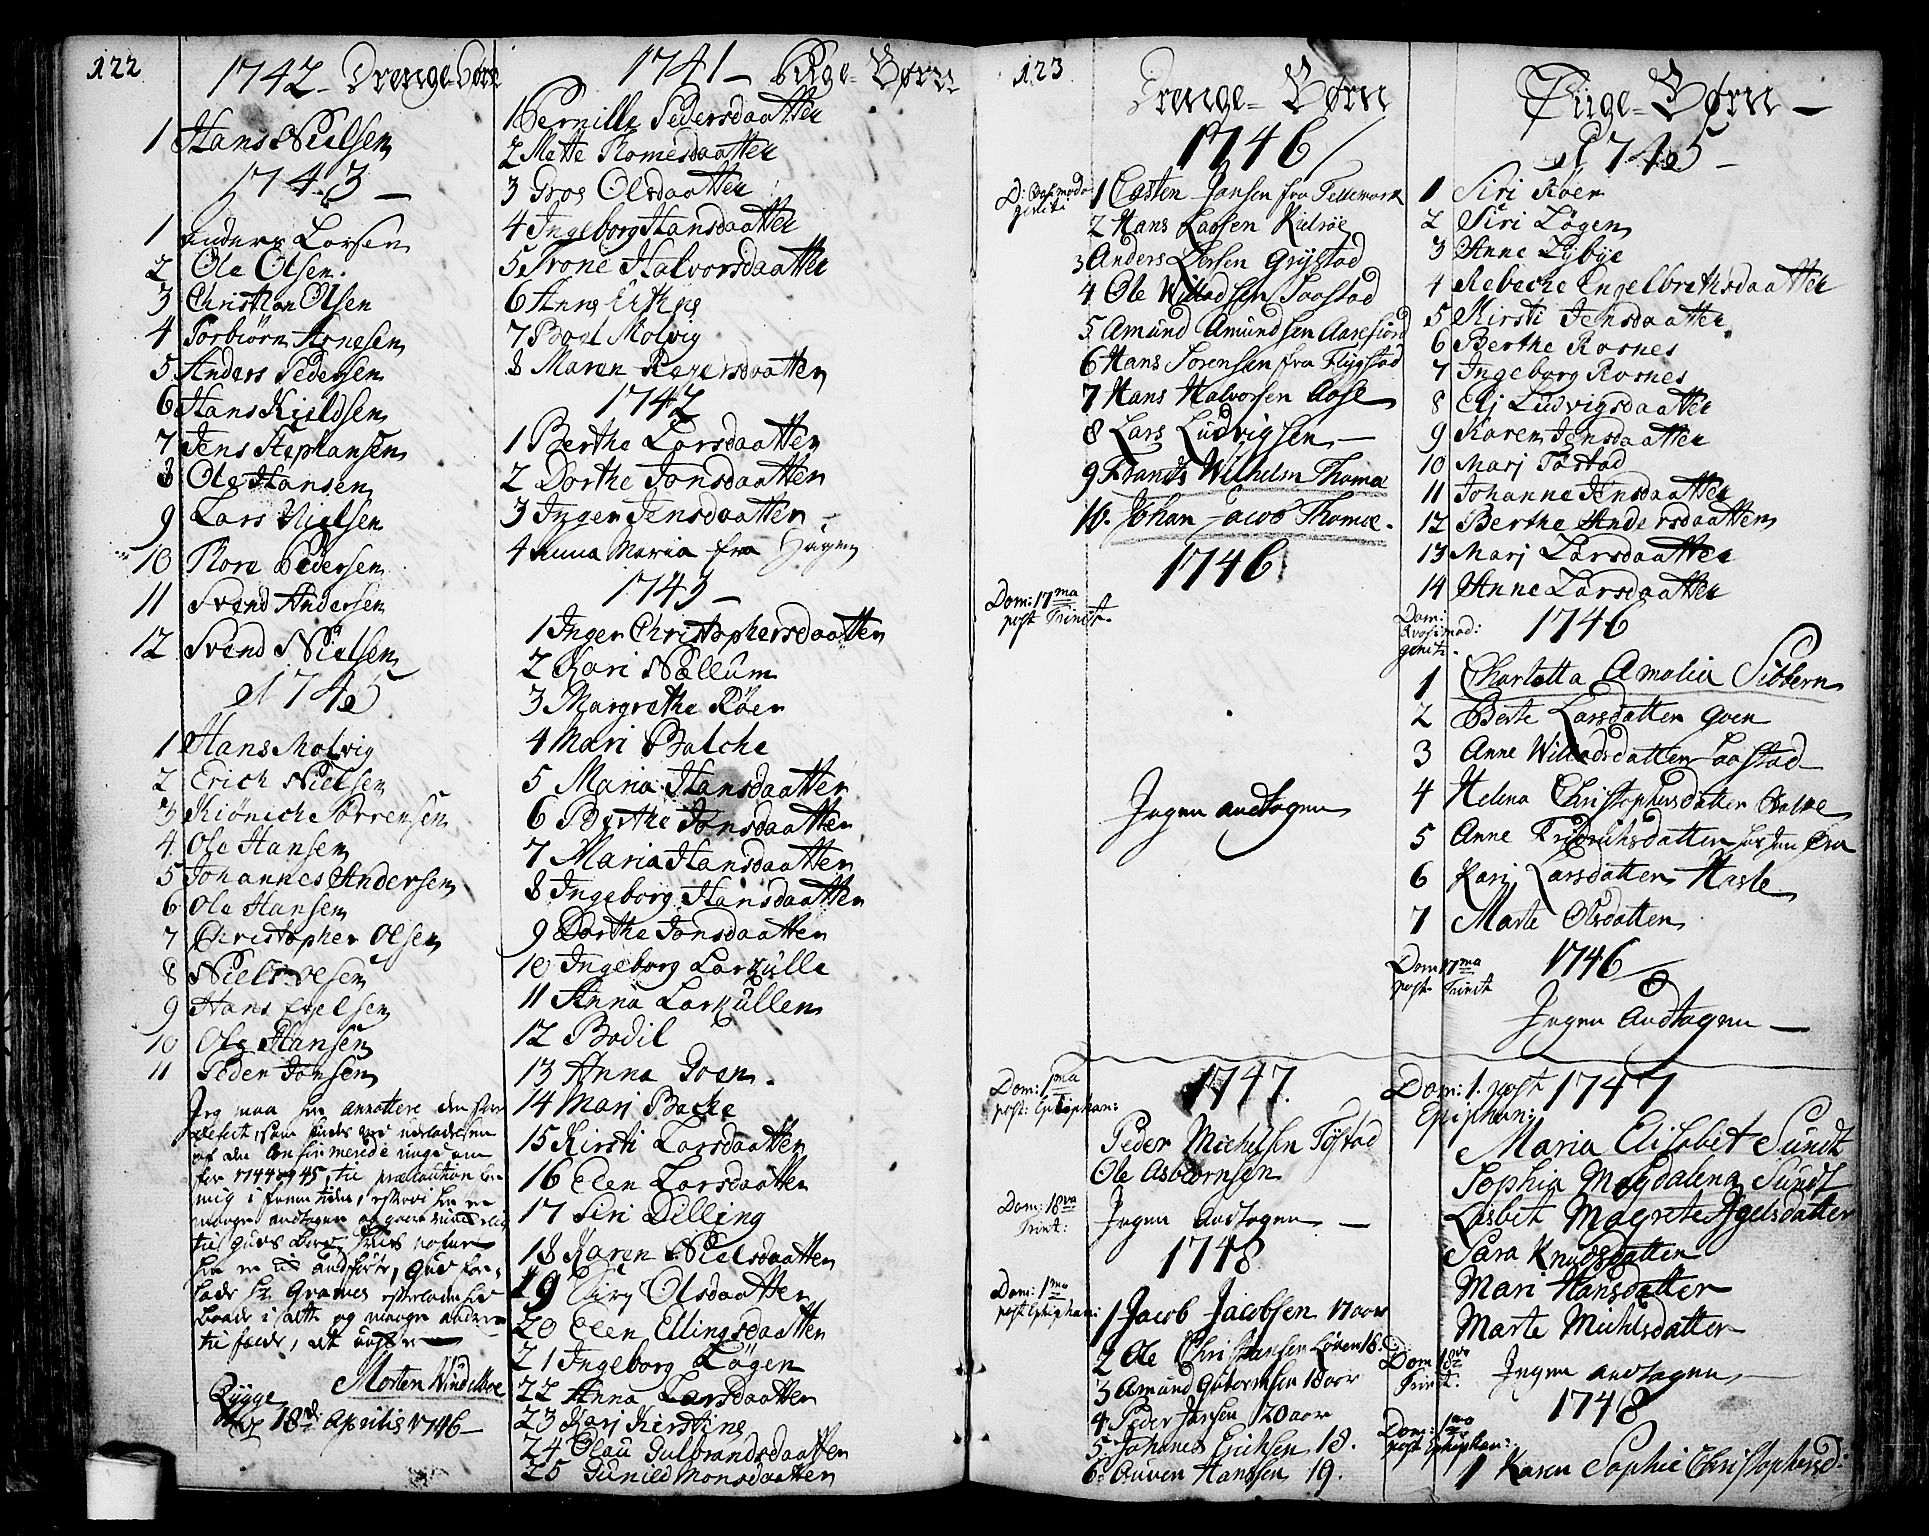 122
1742 - Drenge Børn
1 Hans Nielsen
1743 -
1 Anders Larsen
2 Ole Olsen.
3 Christian Olsen
4 Torbiørn Arnesen
5 Anders Pedersen
6 Hans Kieldsen
7 Jens Stephansen
8 Ole Hansen
9 Lars Nielsen
10 Tore Pedersen
11 Svend Andersen
12 Svend Nielsen
1745
1 Hans Molvig
2 Erich Nielsen
3 Kiönich Sørrensen
4 Ole Hansen
5 Johannes Andersen
6 Ole Hansen
7 Christopher Olsen
8 Niels Olsen
9 Hans Egelsen
10 Ole Hansen
11 Peder Jonsen
Jeg maa her annottere den store
defect, som findes ved udeladelsen
af de Confirmerede unge om
for 1744 og 45, til præcaution for
mig i fremtiden, eftersom her er
mange antagne og gaaet
til Guds Bord, hvis nafne
her er ei andført, Gud for-
lade Hr Gramer efterladenhed
baade i dette og mange andre
tilfælde, det ønsker
Morten Windelboe
Rygge
d 18de Aprilis 1746 -
1741 - Pige - Børn
1 Pernille Pedersdaatter
2 Mette Tomesdaatter
3 Groe Olsdaatter
4 Ingeborg Hansdaatter
5 Trone Halvorsdaatter
6 Anne
7 Boel Molvig
8 Maren Regersdaatter
1742
1 Berthe Larsdaatter
2 Dorthe Jonsdaatter
3 Inger Jensdaatter -
4 Anna Maria fra Hagen
1743 -
1 Inger Christophersdaatter
2 Kari Nællum
3 Margrethe Röer
4 Mari Balche
5 Maria Hansdaatter
6 Berthe Jonsdaatter
7 Maria Hansdaatter
8 Ingeborg Hansdaatter
9 Dorthe Jonsdaatter
10 Ingeborg Larkulle
11 Anna Larkullen
12 Bodil
13 Anna Goen.
14 Mari Bache
15 Kirsti Larsdaatter
16 Elen Larsdaatter
17 Siri Dilling
18 Karen Nielsdaatter
19 Siry Olsdaatter
20 Elen Ellingsdaatter
21 Ingeborg Løgen
22 Anna Larsdaatter
23 Kari Kirstine
24 Olau Gulbrandsdaatter
25 Gunild Monsdaatter
123
Drenge - Børn
1746
D: Qvasimodo
geniti
1 Casten Jansen fra Tellemark
2 Hans Lassen Kulröe
3 Anders Larsen Grystad
4 Ole Willadsen Taastad
5 Amund Amundsen Aarefiord
6 Hans Sorensen fra Flygstad
7 Hans Halvorsen Aase
8 Lars Ludvigsen -
9 Frants Wilhelm Thomæ
10. Johan Jacob Thomæ.
1746
Dom: 17ma
post Trinit.
Ingen andtagen
Dom: 1ma
post: Epiphan:
1747.
Peder Michelsen Tøstad
Ole Asbiørnsen
Dom: 18va
Trinit:
Ingen andtagen -
1748
Dom: 1ma
post Epiphan:
1 Jacob Jacobsen 17 aar
2 Ole Christiansen Løven 18.
3 Amund Guttormsen 18 aar
4 Peder Jansen 20 aar
5. Johanes Erichsen 18.
6. Auven Hanssen 19.
Piige - Børn -
1745 -
1 Siri Röer
2 Siri Løgen
3 Anne Lybye
4 Rebecke Engelbrethsdaatter
5 Kirsti Jensdaatter
6 Berthe Rosnes
7 Ingeborg Rosnes
8 Elj Ludvigsdaatter
9 Karen Jensdaatter
10 Marj Tastad
11 Johanne Jensdaatter
12 Berthe Andersdaatter
13 Marj Larsdaatter
14 Anne Larsdaatter
Dom:
Qvasimod:
genit.
1746
1 Charlotta Amalia Sibbern
2 Berte Larsdatter Goen
3 Anne Willadsdatter Taastad
4 Helena Christophersdatter
5 Anne Fridrichsdatter
6 Kari Larsdatter Hasle
7 Marte Olsdatter
Dom 17ma
post Trinit
1746
Ingen andtagen -
Dom: 1. post
Epiphan:
1747
Maria Elisabet Sundt
Sophia Magdalena Sundt
Lisbet Magrete Agelsdatter
Sara Knudsdatter
Mari Hansdatter
Marte Michelsdatter
Dom 18va
Trinit.
Ingen andtagen -
1748
Dom: 1ma
post Epiphan:
1 Karen Sophie Christophersd: